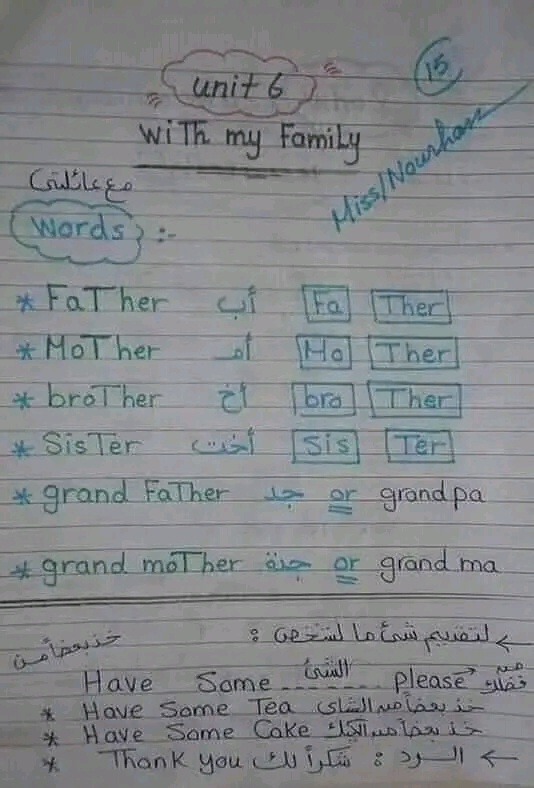 unit 6
15
WiTh my Family
Miss/Nourhan
مع عائلتى)
Words :-
* FaTher أب Fa Ther
* MoTher أم Mo Ther
* broTher أخ bro Ther
* SisTer أخت Sis Ter
* grand FaTher جد or grandpa
* grand moTher جدة or grand ma
← لتقديم شئ ما لشخص : خذ بعضاً من
Have Some الشئ please من فضلك
* Have Some Tea خذ بعضاً من الشاى
* Have Some Cake خذ بعضاً من الكيك
* Thank you شكراً لك : الرد ←